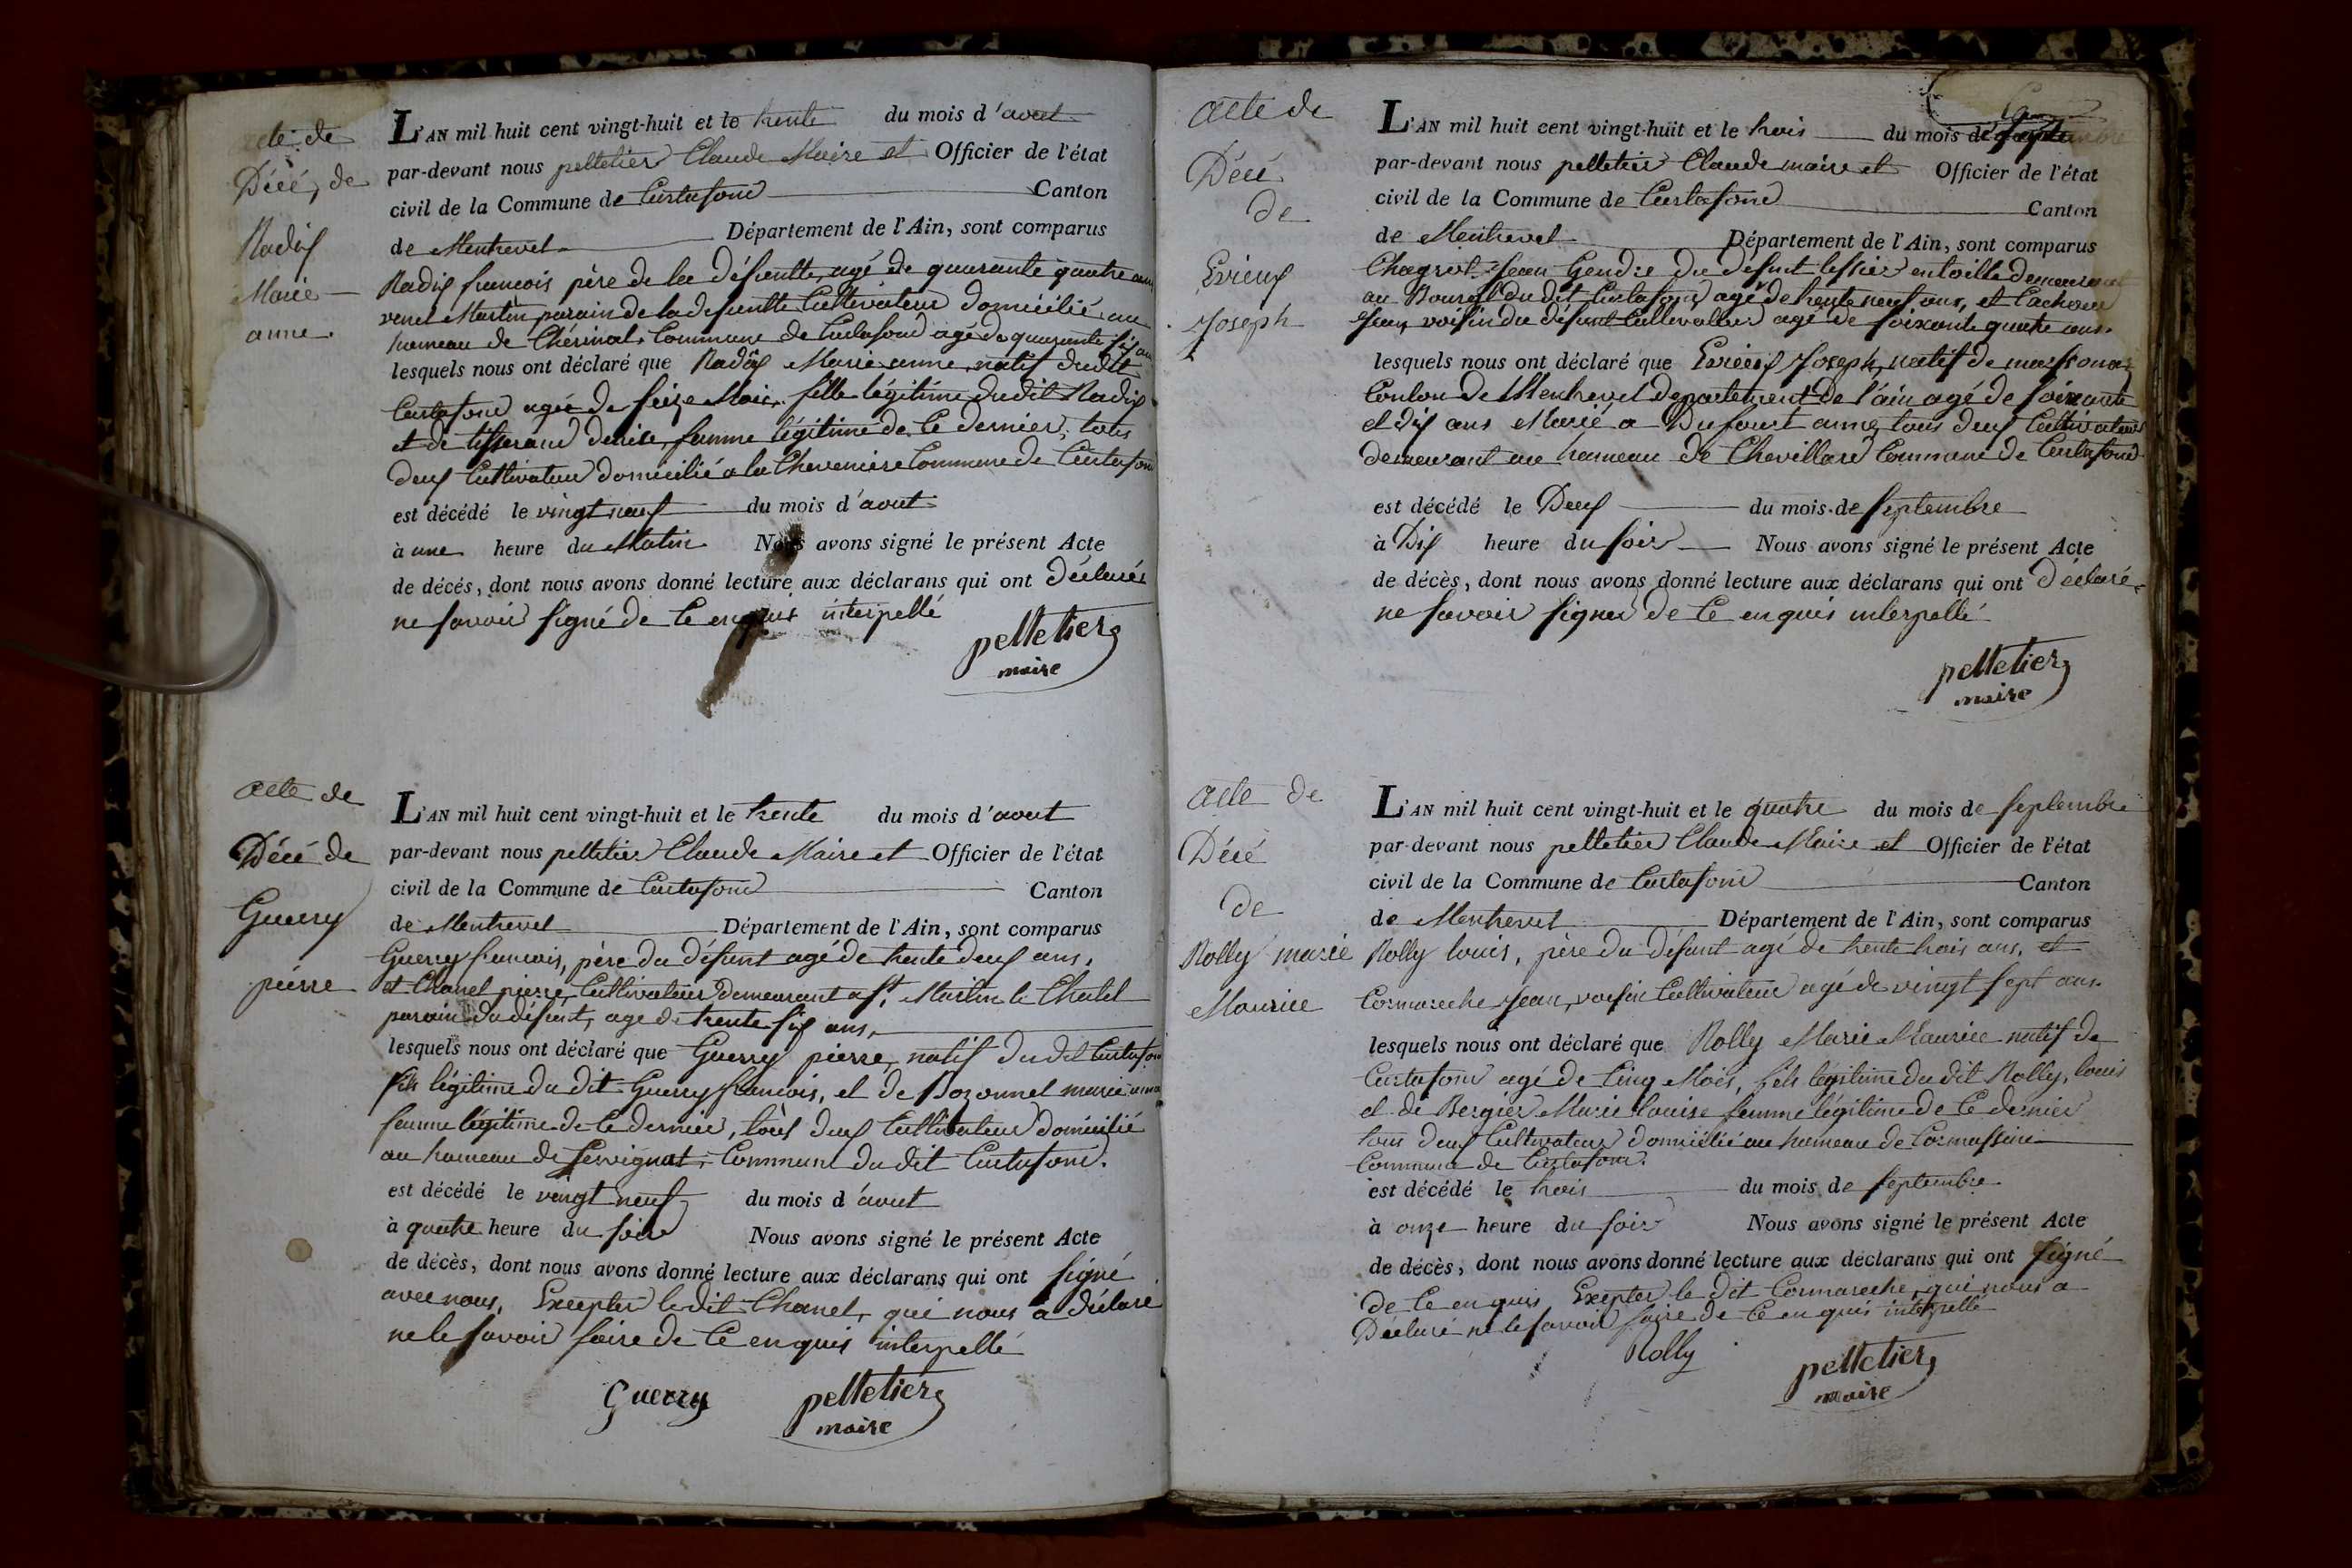 acte de
Décé, de
Radix
Marie
anne.
L'AN mil huit cent vingt-huit et le trente du mois d'avout
par-devant nous pelletier Claude Maire et Officier de l'état
civil de la Commune de Curtafond Canton
de Montrevel Département de l'Ain, sont comparus
Radix francois père de la défuntte, agé de quarante quatre ans
venet Martin parain de la defuntte Cultivateur domicilié au
hameau de Chérinal, Commune de Curtafond agé de quarante six ans
lesquels nous ont déclaré que Radix Marie anne, natif dudit
Curtafond agée de seize Mois, fille légitime dudit Radix
et de tisserand denise, femme légitime de Ce dernier, tous
deux Cultivateur domicilié a la Cheveniere Commune de Curtafond
est décédé le vingt neuf du mois d'avout
à une heure du Matin Nous avons signé le présent Acte
de décés, dont nous avons donné lecture aux déclarans qui ont déclarés
ne savoir signé de Ce enquis interpellé
pelletier
maire
acte de
Décé de
Guerry
pierre
L'AN mil huit cent vingt-huit et le trente du mois d'avout
par-devant nous pelletier Claude Maire et Officier de l'état
civil de la Commune de Curtafond Canton
de Montrevel Département de l'Ain, sont comparus
Guerry francois, père du défunt agé de trente deux ans,
et Chanel pierre, Cultivateur demeurant a St. Martin le Chatel
parain du défunt, agé de trente six ans,
lesquels nous ont déclaré que Guerry pierre, natif du dit Curtafond
fils légitime du dit Guerry francois, et de Bozonnet marie anne
femme légitime de Ce dernier, tous deux Cultivateur domicilié
au hameau de Servignat, Commune du dit Curtafond.
est décédé le vingt neuf du mois d'avout
à quatre heure du soir Nous avons signé le présent Acte
de décès, dont nous avons donné lecture aux déclarans qui ont signé
avec nous, Excepter le dit Chanel, qui nous a déclaré
ne le savoir faire de Ce enquis interpellé
Guerry pelletier
maire
acte de
Décé
de
Evieux
Joseph
L'AN mil huit cent vingt-huit et le trois du mois de septembre
par-devant nous pelletier Claude maire et Officier de l'état
civil de la Commune de Curtafond Canton
de Montrevel Département de l'Ain, sont comparus
Jean Gendre du défunt tissier en toille demeurant
au du dit Curtafond agé de trente neuf ans, et
Jean, voisin du défunt Cultivateur agé de soixante quatre ans.
lesquels nous ont déclaré que Evieux Joseph, natif de marsonas
Conton de Montrevel departement de l'ain agé de soixante
et dix ans Marié a Dufour anne, tous deux Cultivateur
demeurant au hameau de Chevillard Commune de Curtafond
est décédé le Deux du mois de septembre
à Dix heure du soir Nous avons signé le présent Acte
de décès, dont nous avons donné lecture aux déclarans qui ont déclaré
ne savoir signer de Ce enquis interpellé
pelletier
maire
acte de
Décé
de
Rolly marie
Maurice
L'AN mil huit cent vingt-huit et le quatre du mois de septembre
par-devant nous pelletier Claude Maire et Officier de l'état
civil de la Commune de Curtafond Canton
de Montrevel Département de l'Ain, sont comparus
Rolly louis, père du défunt agé de trente trois ans, et
Cormareche Jean, voisin Cultivateur agé de vingt sept ans.
lesquels nous ont déclaré que Rolly Marie Maurice natif de
Curtafond agé de Cinq Mois, fils légitime du dit Rolly, louis
et de Bergier Marie louise femme légitime de Ce dernier
tous deux Cultivateur domicilié au hameau de Cormassine
Commune de Curtafond.
est décédé le trois du mois de septembre
à onze heure du soir Nous avons signé le présent Acte
de décès, dont nous avons donné lecture aux déclarans qui ont signé
de Ce enquis Excepter le dit Cormareche, qui nous a
Déclaré ne le savoir faire de Ce enquis interpellé
Rolly pelletier
maire